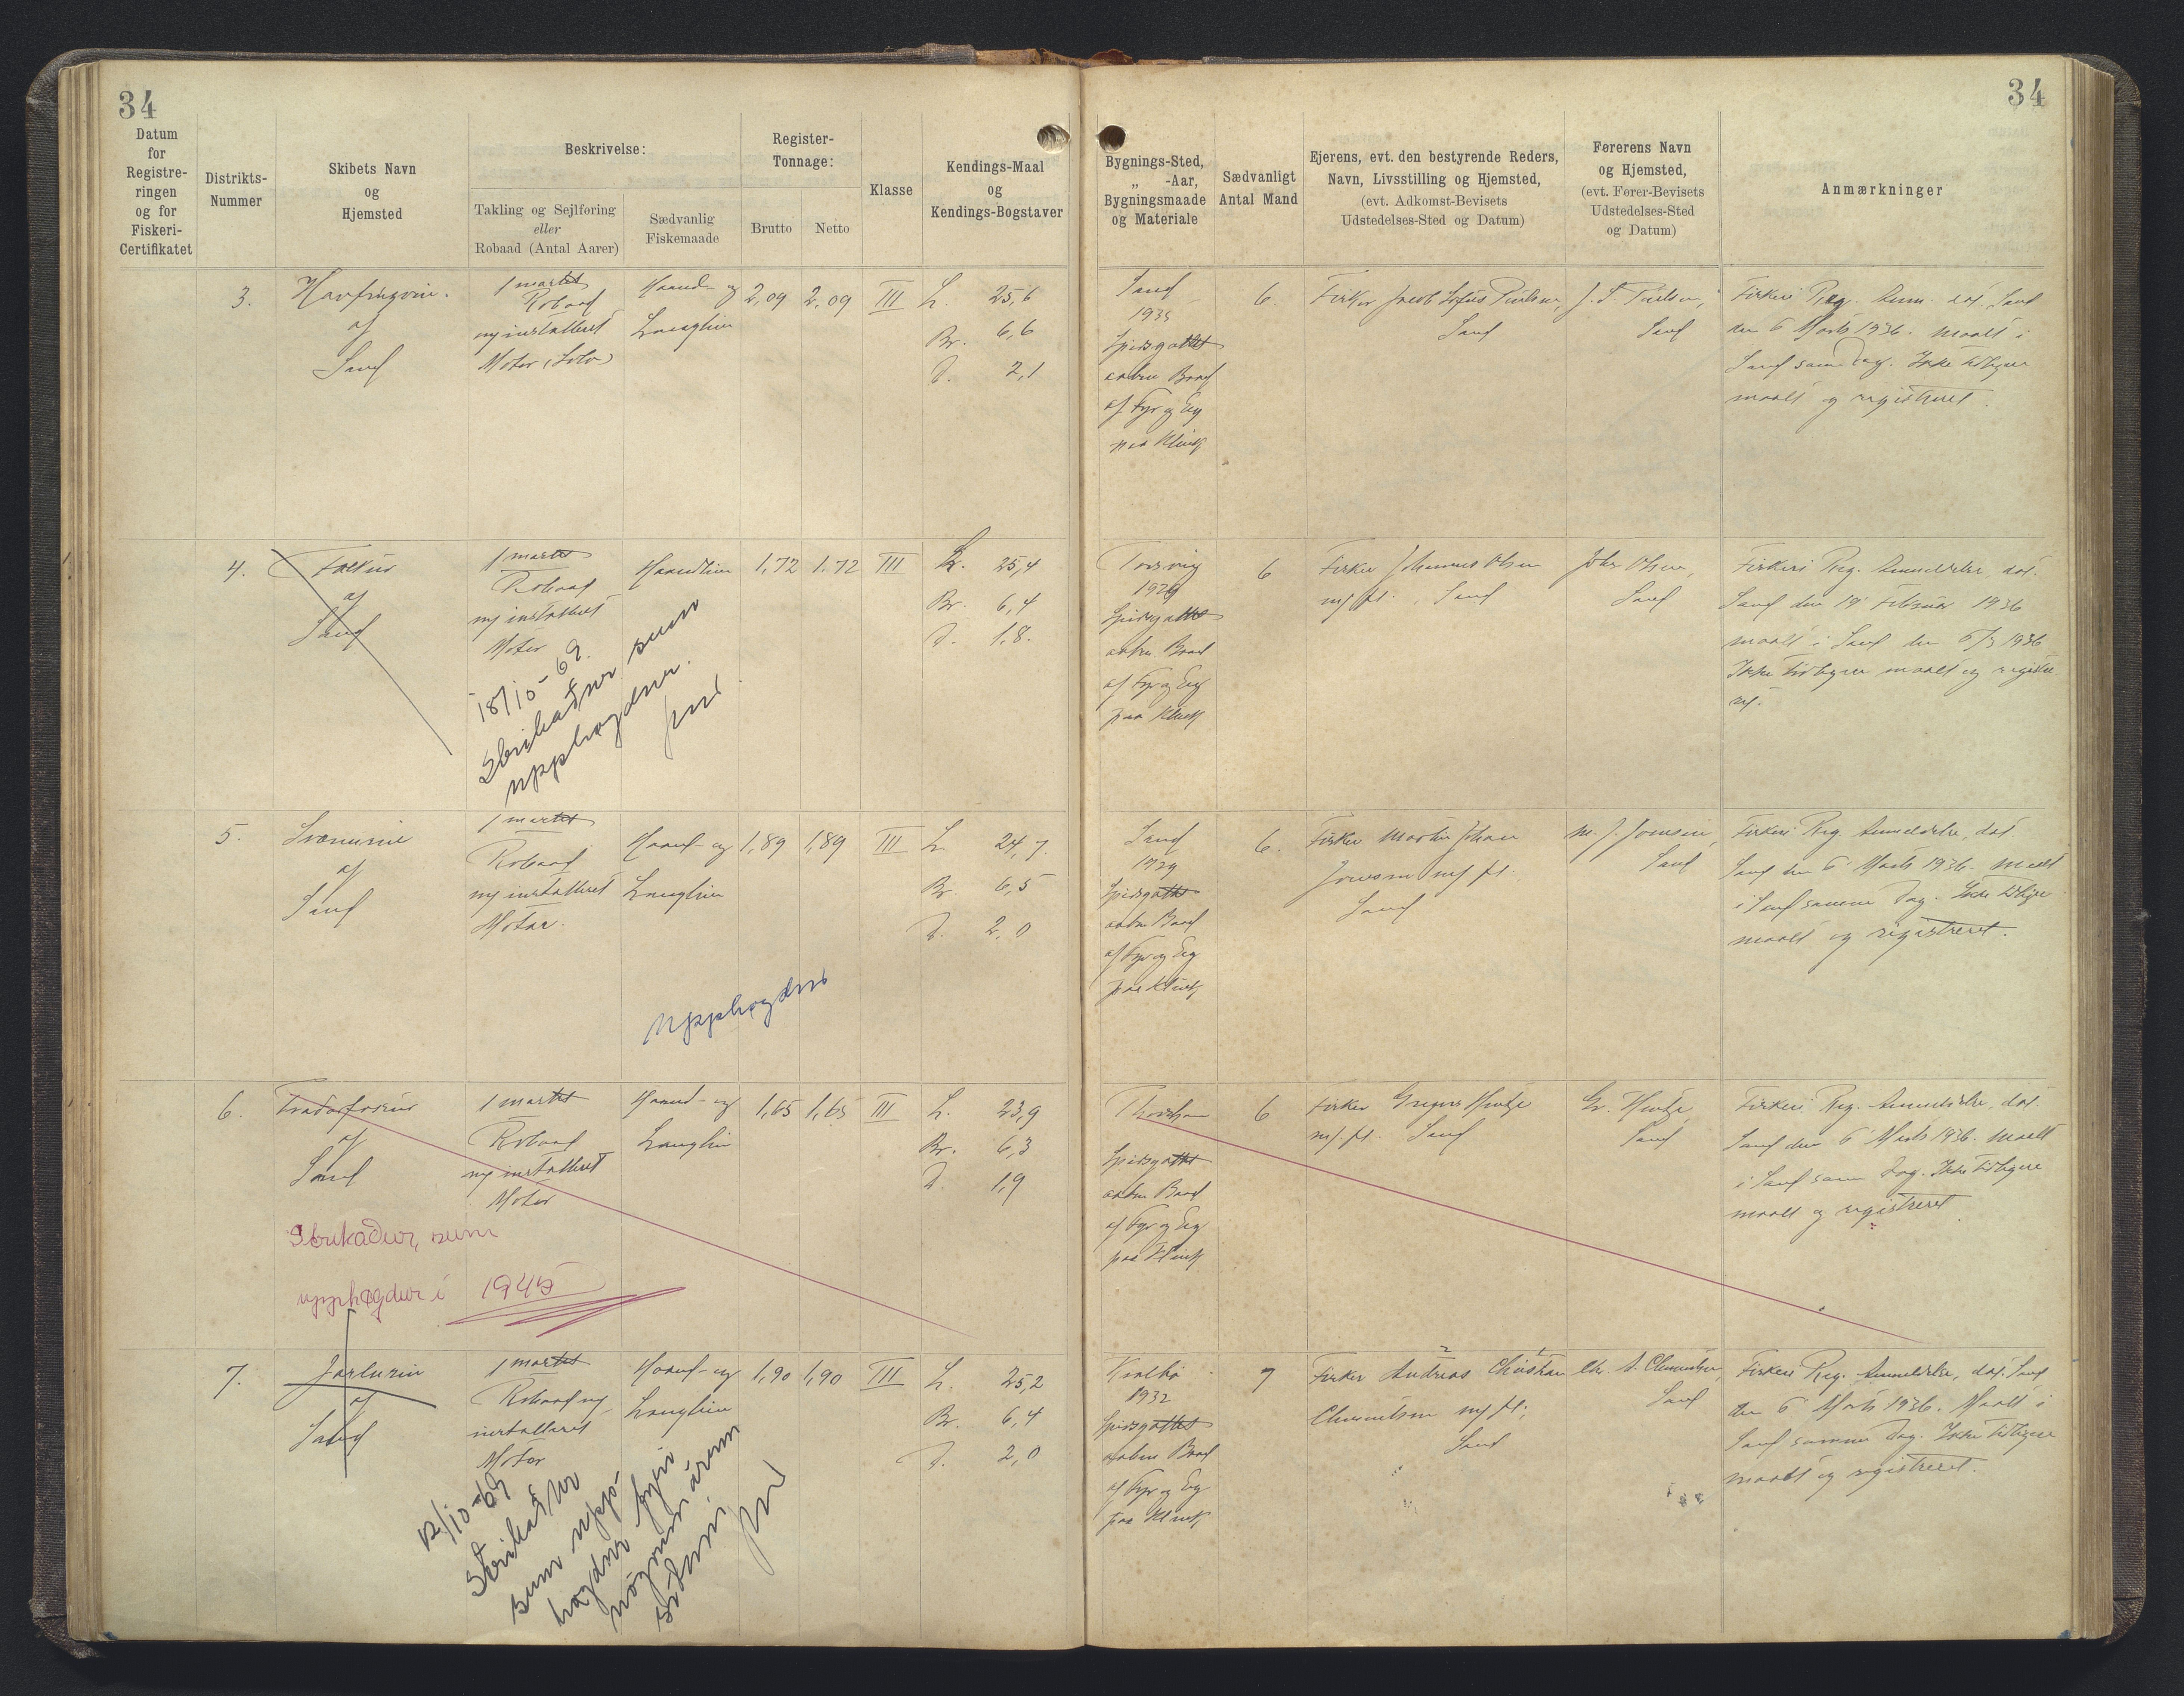 34
34
Datum
for
Registre-
ringen
og for
Fiskeri-
Certifikatet
Distrikts-
Nummer
Skibets Navn
og
Hjemsted
Beskrivelse:
Takling og Sejlføring
eller
Robaad (Antal Aarer)
Sædvanlig
Fiskemaade
Register-
Tonnage:
Brutto
Netto
Klasse
Kendings-Maal
og
Kendings-Bogstaver
Bygnings-Sted,
„ -Aar,
Bygningsmaade
og Materiale
Sædvanligt
Antal Mand
Ejerens, evt. den bestyrende Reders,
Navn, Livsstilling og Hjemsted,
(evt. Adkomst-Bevisets
Udstedelses-Sted og Datum)
Førerens Navn
og Hjemsted,
(evt. Fører-Bevisets
Udstedelses-Sted
og Datum)
Anmærkninger
3.
af
Sand
1 mastet
Robaad
ny installeret
Motor (Solo)
Haand- og
Langline
2,09
2,09
III
L 25,6
Br. 6,6
D. 2,1
Sand
1935
Spidsgattet
aaben Baad
af Fyr og Eg
paa Klink
6.
Fisker Jacob
Sand
Sand
Fiskeri Reg. Anm. dat. Sand
den 6 Marts 1936. Maalt i
Sand samme Dag. Ikke tidligere
maalt og registreret.
4.
af
Sand
1 mastet
Robaad
ny installeret
Motor
Haandline
1,72
1.72
III
L. 25,4
Br. 6,4
D. 1,8.
18/10-69.
Strikaður sum
upphøgdur.
1929
Spidsgattet
aaben Baad
af Fyr og Eg
paa Klink
6
Fisker Johannes Olsen
Sand
Johs Olsen,
Sand
Fiskeri Reg. Anmeldelse, dat.
Sand den 19 Februar 1936
maalt i Sand den 6/3 1936
Ikke tidligere maalt og registre
ret.
5.
af
Sand
1 mastet
Robaad
ny installeret
Motor.
Haand- og
Langline
1,89
1,89
III
L. 24,7.
Br. 6,5
D. 2,0
upphøgdur
Sand
1929
Spidsgattet
aaben Baad
af Fyr og Eg
paa Klink
6.
Fisker Martin Johan
Joensen
Sand
M. J. Joensen,
Sand
Fiskeri Reg. Anmeldelse, dat.
Sand den 6 Marts 1936. Maalt
i Sand samme Dag. Ikke tidligere
maalt og registreret.
6.
af
Sand
1 mastet
Robaad
ny installeret
Motor
Haand- og
Langline
1,65
1,65
III
L. 23,9
Br. 6,3
D. 1,9
Strikaður, sum
upphøgdur í 1945
Spidsgattet
aaben Baad
af Fyr og Eg
paa Klink
6
Fisker
Sand
Sand
Fiskeri Reg. Anmeldelse, dat.
Sand den 6 Marts 1936. Maalt
i Sand samme Dag. Ikke tidligere
maalt og registreret
7.
af
Sand
1 mastet
Robaad ny
installeret
Motor
Haand- og
Langline
1,90
1,90
III
L. 25,2
Br. 6,4
D. 2,0
12/10-69
Strikaður
sum upp-
høgdur fyri
nógvum árum
síðani.
1932
Spidsgattet
aaben Baad
af Fyr og Eg
paa Klink
7
Fisker Andreas Christian
Clementsen
Sand
Chr. A. Clementsen,
Sand
Fiskeri Reg. Anmeldelse, dat. Sand
den 6 Marts 1936. Maalt i
Sand samme Dag. Ikke tidligere
maalt og registreret.